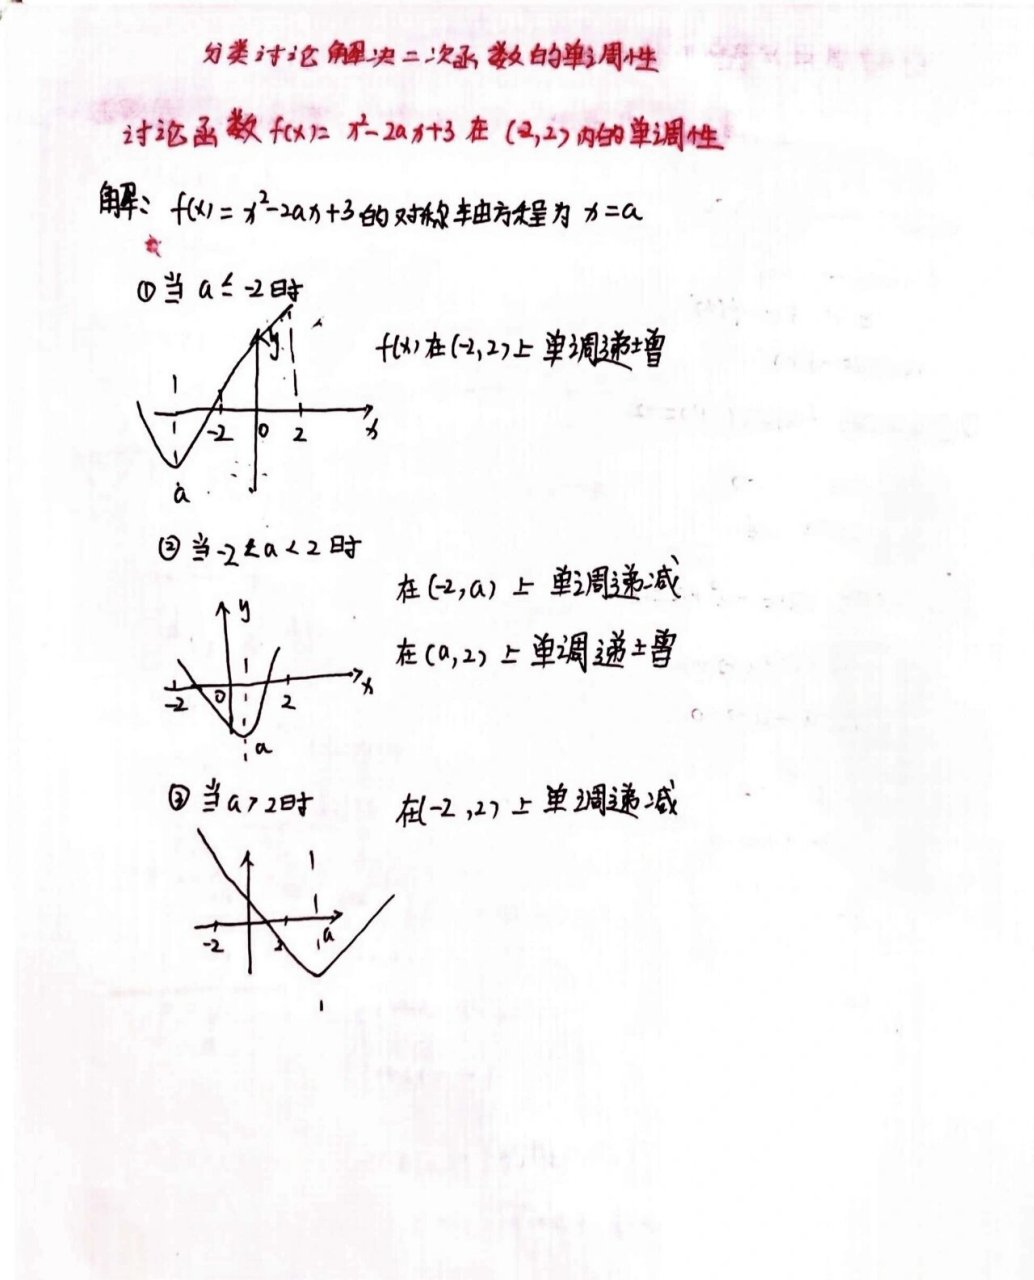 分类讨论解决二次函数的单调性
讨论函数 f(x)= x²-2ax+3 在 (-2,2) 内的单调性
解: f(x)=x²-2ax+3的对称轴方程为 x=a
① 当 a≤-2时
f(x)在(-2,2)上 单调递增
y
-2 0 2 x
a
② 当-2≤a<2时
在(-2,a)上 单调递减
在(a,2)上单调递增
y
-2 0 2 x
a
③ 当a>2时
在(-2,2)上 单调递减
-2 2 a